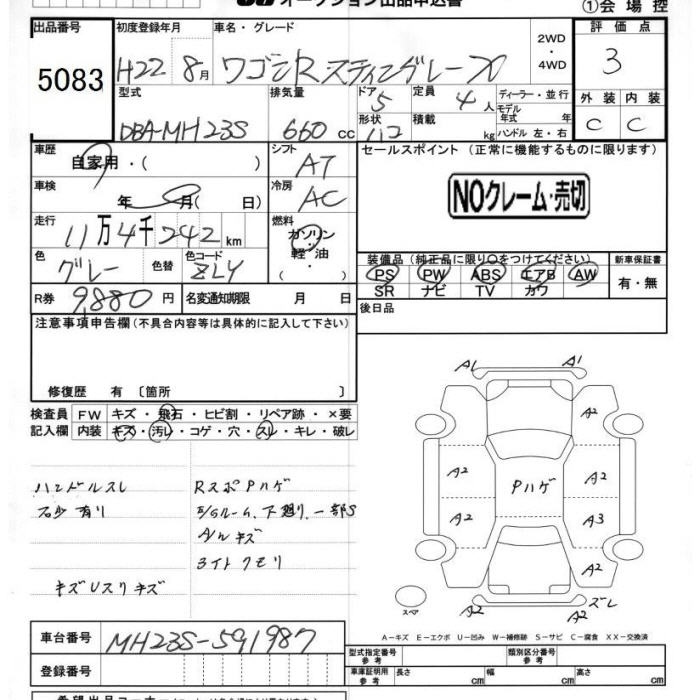 オークション出品申込書
①会場控
出品番号
5083
初度登録年月
H22 8月
車名・グレード
ワゴンR スティングレー X
2WD
・
4WD
評価点
3
型式
DBA-MH23S
排気量
660 cc
ドア 5
形状
定員 4人
積載 kg
ディーラー・並行
モデル
年式 年
ハンドル 左・右
外装 内装
C C
車歴
自家用・( )
シフト
AT
車検
年 月( 日)
冷房
AC
走行
11万4千242km
燃料
ガソリン
・
軽油
・
色
グレー
色替
色コード
ZLY
R券 9,880円
名変通知期限 月 日
セールスポイント (正常に機能するものに限ります)
NOクレーム・売切
装備品 (純正品に限り○をつけてください)
PS PW ABS エアB AW
SR ナビ TV カワ
新車保証書
有・無
後日品
注意事項申告欄(不具合内容等は具体的に記入して下さい)
修復歴 有 〔箇所 〕
検査員 FW キズ・飛石・ヒビ割・リペア跡・×要
記入欄 内装 キズ・汚レ・コゲ・穴・スレ・キレ・破レ
ハンドルスレ
石少有り
キズUスリキズ
RスポPハゲ
E/Gルーム、下廻り、一部S
A/Wキズ
ライトクモリ
A1 A1
A2
A2 A2
Pハゲ
A2 A3
A2
A2 A2 ズレ
スペア
A－キズ E－エクボ U－凹み W－補修跡 S－サビ C－腐食 XX－交換済
車台番号
MH23S-591987
登録番号
型式指定番号
参考
類別区分番号
参考
車庫証明用
参考
長さ cm 幅 cm 高さ cm